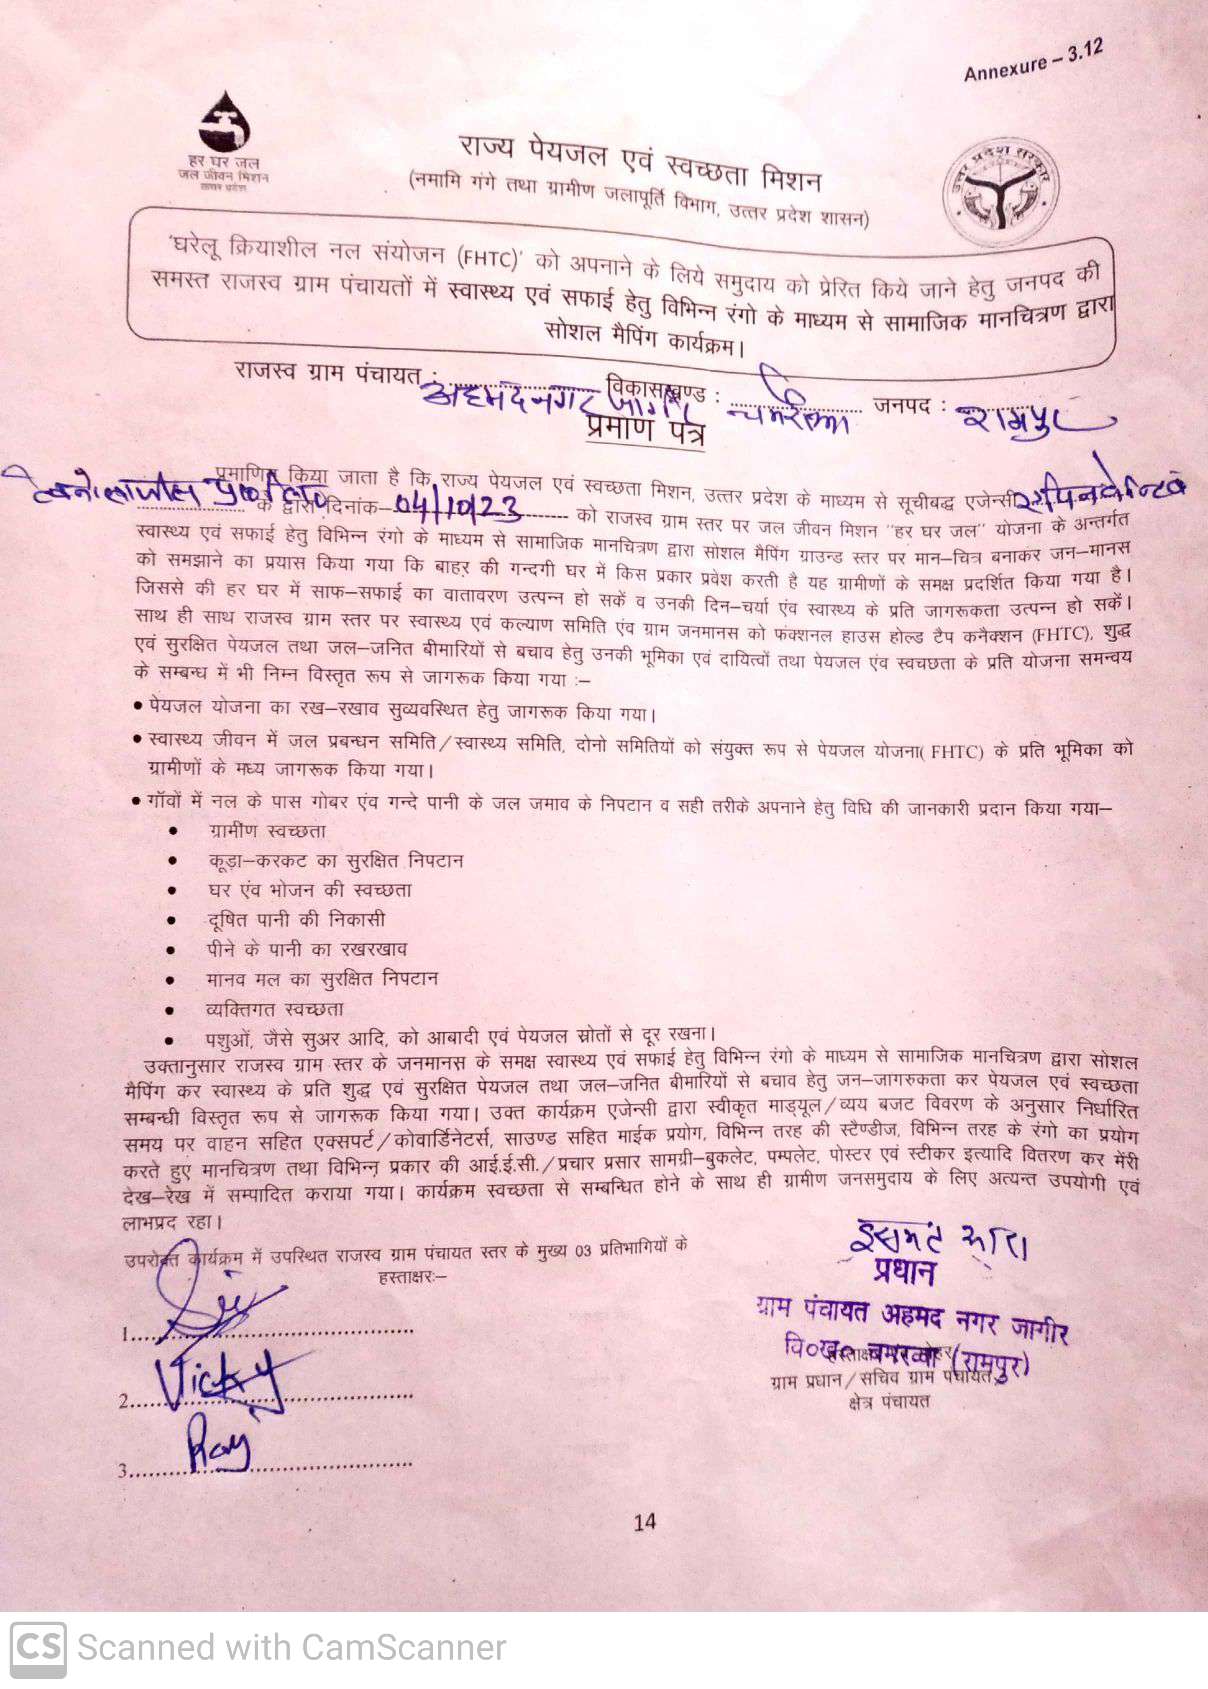 Annexure – 3.12
हर घर जल
जल जीवन मिशन
उत्तर प्रदेश सरकार
राज्य पेयजल एवं स्वच्छता मिशन
(नमामि गंगे तथा ग्रामीण जलापूर्ति विभाग, उत्तर प्रदेश शासन)
'घरेलू क्रियाशील नल संयोजन (FHTC)' को अपनाने के लिये समुदाय को प्रेरित किये जाने हेतु जनपद की
समस्त राजस्व ग्राम पंचायतों में स्वास्थ्य एवं सफाई हेतु विभिन्न रंगो के माध्यम से सामाजिक मानचित्रण द्वारा
सोशल मैपिंग कार्यक्रम।
राजस्व ग्राम पंचायत : अहमदनगर जागीर विकासखण्ड : जनपद : रामपुर
प्रमाण पत्र
प्रमाणित किया जाता है कि राज्य पेयजल एवं स्वच्छता मिशन, उत्तर प्रदेश के माध्यम से सूचीबद्ध एजेन्सी
के द्वारा दिनांक–04/10/23 को राजस्व ग्राम स्तर पर जल जीवन मिशन "हर घर जल" योजना के अन्तर्गत
स्वास्थ्य एवं सफाई हेतु विभिन्न रंगो के माध्यम से सामाजिक मानचित्रण द्वारा सोशल मैपिंग ग्राउन्ड स्तर पर मान–चित्र बनाकर जन–मानस
को समझाने का प्रयास किया गया कि बाहर की गन्दगी घर में किस प्रकार प्रवेश करती है यह ग्रामीणों के समक्ष प्रदर्शित किया गया है।
जिससे की हर घर में साफ–सफाई का वातावरण उत्पन्न हो सकें व उनकी दिन–चर्या एंव स्वास्थ्य के प्रति जागरूकता उत्पन्न हो सकें।
साथ ही साथ राजस्व ग्राम स्तर पर स्वास्थ्य एवं कल्याण समिति एंव ग्राम जनमानस को फंक्शनल हाउस होल्ड टैप कनैक्शन (FHTC), शुद्ध
एवं सुरक्षित पेयजल तथा जल–जनित बीमारियों से बचाव हेतु उनकी भूमिका एवं दायित्वों तथा पेयजल एंव स्वचछता के प्रति योजना समन्वय
के सम्बन्ध में भी निम्न विस्तृत रूप से जागरूक किया गया :–
• पेयजल योजना का रख–रखाव सुव्यवस्थित हेतु जागरूक किया गया।
• स्वास्थ्य जीवन में जल प्रबन्धन समिति/स्वास्थ्य समिति, दोनो समितियों को संयुक्त रूप से पेयजल योजना( FHTC) के प्रति भूमिका को
ग्रामीणों के मध्य जागरूक किया गया।
• गॉवों में नल के पास गोबर एंव गन्दे पानी के जल जमाव के निपटान व सही तरीके अपनाने हेतु विधि की जानकारी प्रदान किया गया–
• ग्रामींण स्वच्छता
• कूड़ा–करकट का सुरक्षित निपटान
• घर एंव भोजन की स्वच्छता
• दूषित पानी की निकासी
• पीने के पानी का रखरखाव
• मानव मल का सुरक्षित निपटान
• व्यक्तिगत स्वच्छता
• पशुओं, जैसे सुअर आदि, को आबादी एवं पेयजल स्रोतों से दूर रखना।
उक्तानुसार राजस्व ग्राम स्तर के जनमानस के समक्ष स्वास्थ्य एवं सफाई हेतु विभिन्न रंगो के माध्यम से सामाजिक मानचित्रण द्वारा सोशल
मैपिंग कर स्वास्थ्य के प्रति शुद्ध एवं सुरक्षित पेयजल तथा जल–जनित बीमारियों से बचाव हेतु जन–जागरुकता कर पेयजल एवं स्वच्छता
सम्बन्धी विस्तृत रूप से जागरूक किया गया। उक्त कार्यक्रम एजेन्सी द्वारा स्वीकृत माड्यूल/व्यय बजट विवरण के अनुसार निर्धारित
समय पर वाहन सहित एक्सपर्ट/कोवार्डिनेटर्स, साउण्ड सहित माईक प्रयोग, विभिन्न तरह की स्टैण्डीज, विभिन्न तरह के रंगो का प्रयोग
करते हुए मानचित्रण तथा विभिन्न प्रकार की आई.ई.सी./प्रचार प्रसार सामग्री–बुकलेट, पम्पलेट, पोस्टर एवं स्टीकर इत्यादि वितरण कर मेंरी
देख–रेख में सम्पादित कराया गया। कार्यक्रम स्वच्छता से सम्बन्धित होने के साथ ही ग्रामीण जनसमुदाय के लिए अत्यन्त उपयोगी एवं
लाभप्रद रहा।
उपरोक्त कार्यक्रम में उपस्थित राजस्व ग्राम पंचायत स्तर के मुख्य 03 प्रतिभागियों के
हस्ताक्षरः–
1.
2. Vicky
3. Ray
प्रधान
ग्राम पंचायत अहमद नगर जागीर
वि०ख० चमरव्वा (रामपुर)
ग्राम प्रधान/सचिव ग्राम पंचायत
क्षेत्र पंचायत
14
CS Scanned with CamScanner